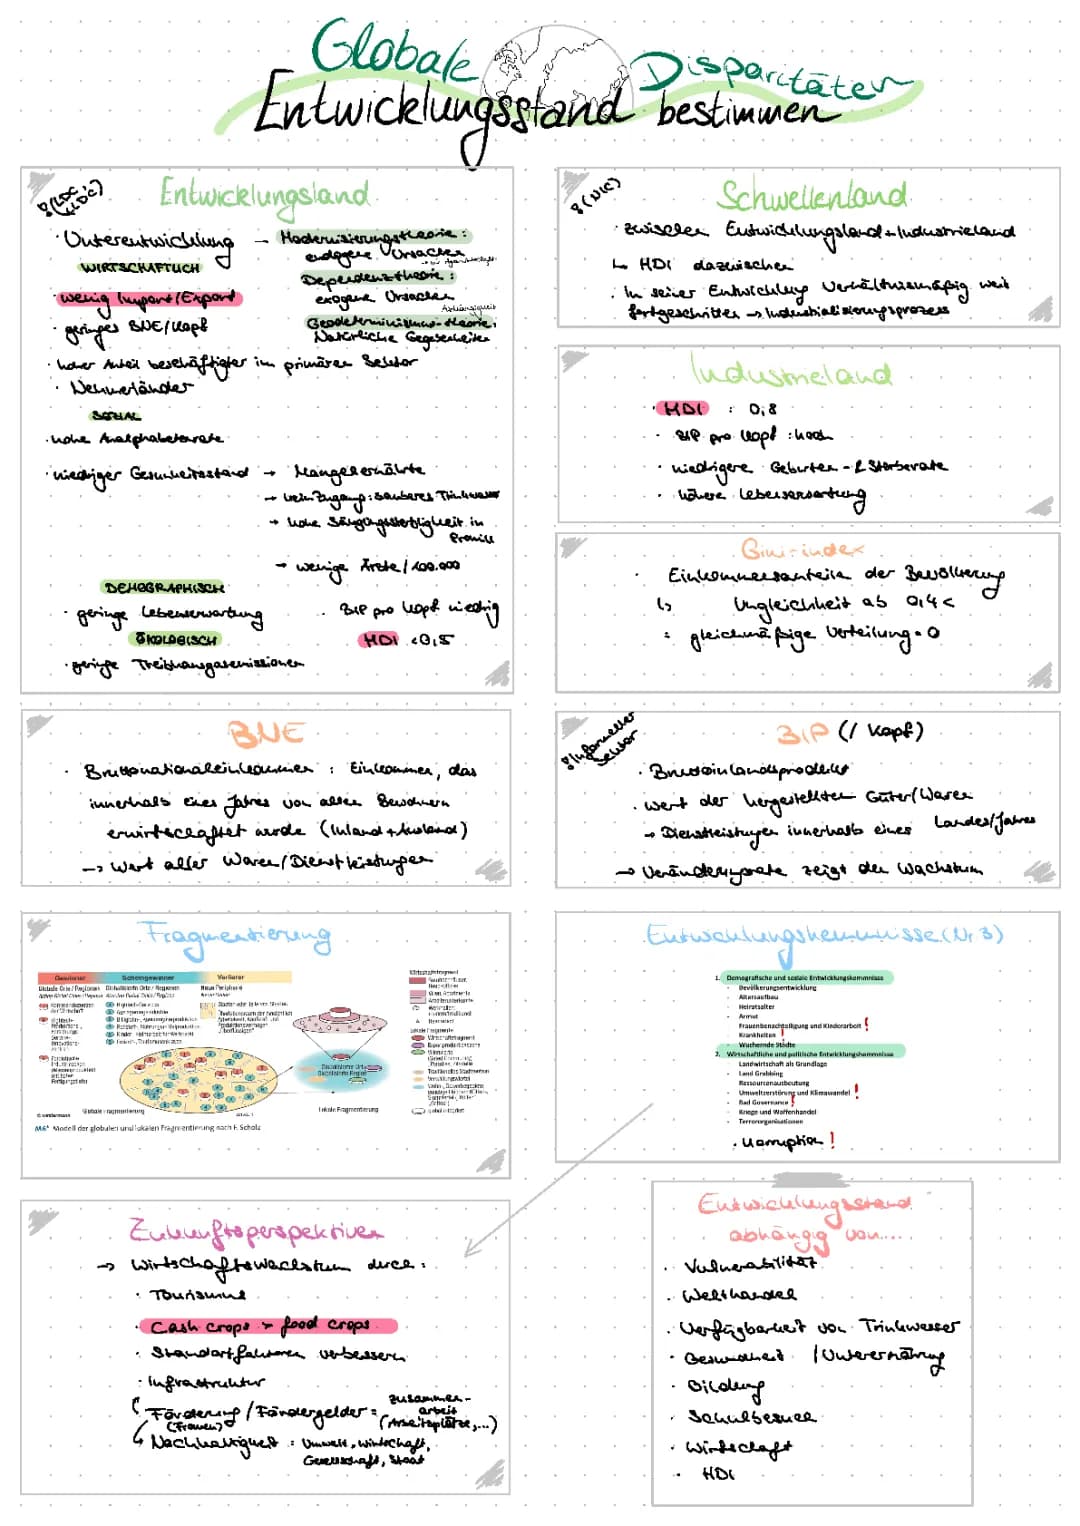 Globale Disparitäten
Entwicklungsstand bestimmen
Entwicklungsland
· Unterentwicklung → Modernisierungstheorie:
endogene Ursachen
WIRTSCHAFTLICH
Dependenztheorie:
exogene Ursachen
Abhängigkeit
· wenig Import/Export
· geringes BNE/Kopf
Geodeterminismus-theorie:
Natürliche Gegebenheiten
· hoher Anteil beschäftigter im primären Sektor
· Nehmerländer
SOZIAL
· hohe Analphabetenrate
· niedriger Gesundheitsstand → Mangelernährte
→ kein Zugang: sauberes Trinkwasser
→ hohe Säuglingssterblichkeit in
Promille
→ wenige Ärzte / 100.000
DEMOGRAPHISCH
· geringe Lebenserwartung
· BIP pro Kopf niedrig
ÖKOLOGISCH
HDI <0,5
· geringe Treibhausgasemissionen
(NIC)
Schwellenland
· zwischen Entwicklungsland + Industrieland
↳ HDI dazwischen
· In seiner Entwicklung verhältnismäßig weit
fortgeschritten → Industrialisierungsprozess
Industrieland
· HDI : 0,8
· BIP pro Kopf : hoch
· niedrigere Geburten- & Sterberate
· höhere Lebenserwartung
Gini-index
· Einkommensanteile der Bevölkerung
↳ Ungleichheit ab 0,4<
: gleichmäßige Verteilung = 0
BNE
· Bruttonationaleinkommen : Einkommen, das
innerhalb eines Jahres von allen Bewohnern
erwirtschaftet wurde (Inland + Ausland)
→ Wert aller Waren/Dienstleistungen
Informeller
Sektor
BIP (/ Kopf)
· Bruttoinlandsprodukt
· Wert der hergestellten Güter/Waren
→ Dienstleistungen innerhalb eines Landes/Jahres
→ Veränderungsrate zeigt den Wachstum
Fragmentierung
Gewinner Scheingewinner Verlierer
Globale Orte / Regionen
Globalisierte Orte / Regionen
Neue Peripherie
Globale Fragmentierung
Lokale Fragmentierung
M6 Modell der globalen und lokalen Fragmentierung nach F. Scholz
Entwicklungshemmnisse (Nr 3)
1. Demografische und soziale Entwicklungshemmnisse
- Bevölkerungsentwicklung
- Altersaufbau
- Heiratsalter
- Armut
- Frauenbenachteiligung und Kinderarbeit !
- Krankheiten !
- Wuchernde Städte
2. Wirtschaftliche und politische Entwicklungshemmnisse
- Landwirtschaft als Grundlage
- Land Grabbing
- Ressourcenausbeutung
- Umweltzerstörung und Klimawandel !
- Bad Governance !
- Kriege und Waffenhandel
- Terrororganisationen
· Korruption !
Zukunftsperspektiven
→ Wirtschaftswachstum durch:
· Tourismus
· Cash crops > food crops
· Standortfaktoren verbessern
· Infrastruktur
Förderung / Fördergelder : zusammenarbeit
(Frauen)
(Arbeitsplätze,...)
↳ Nachhaltigkeit : Umwelt, Wirtschaft,
Gesellschaft, Staat
Entwicklungsstand
abhängig von....
· Vulnerabilität
· Welthandel
· Verfügbarkeit von Trinkwasser
· Gesundheit / Unterernährung
· Bildung
· Schulbesuch
· Wirtschaft
· HDI